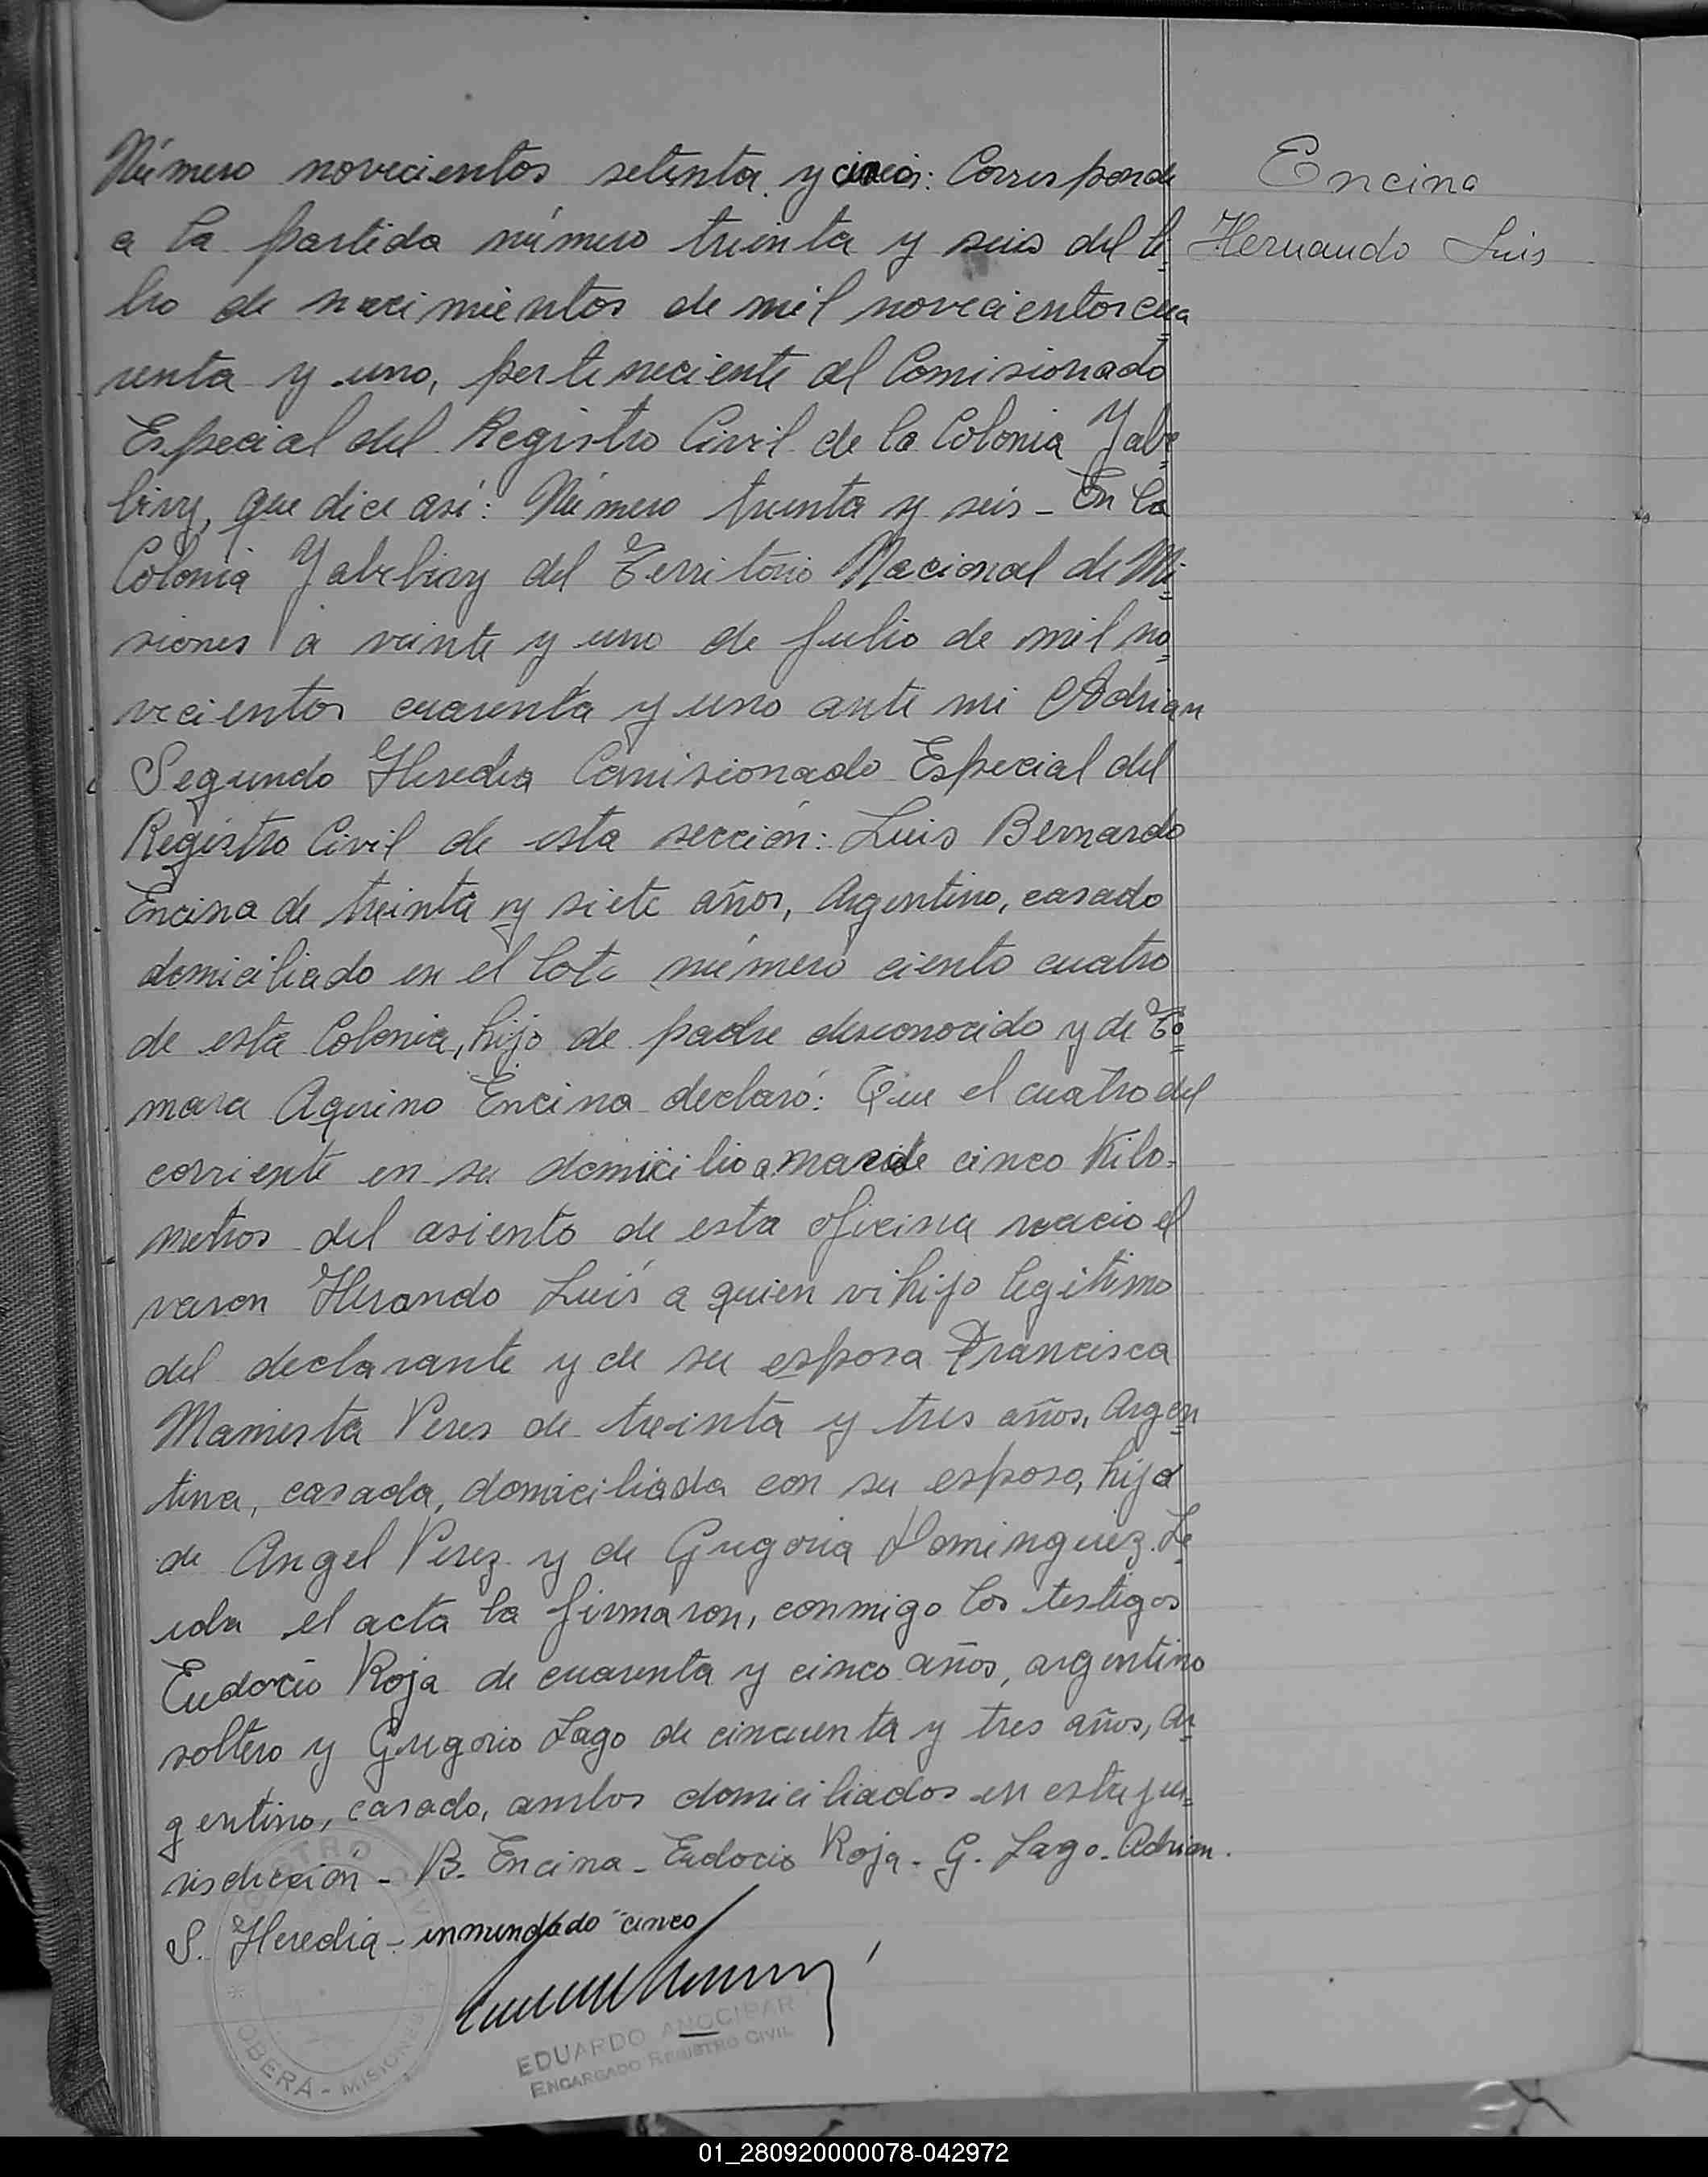 Número novecientos setenta y cinco: Corresponde
a la partida número treinta y seis del li
bro de nacimientos de mil novecientos cua
renta y uno, perteneciente al Comisionado
Especial del Registro Civil de la Colonia Yabe
biry, que dice así: Número treinta y seis - En la
Colonia Yabebiry del Territorio Nacional de Mi
siones a veinte y uno de julio de mil no
vecientos cuarenta y uno ante mi Adrian
Segundo Heredia Comisionado Especial del
Registro Civil de esta sección: Luis Bernardo
Encina de treinta y siete años, Argentino, casado
domiciliado en el lote número ciento cuatro
de esta Colonia, hijo de padre desconocido y de To
mara Aquino Encina declaró: Que el cuatro del
corriente en su domicilio a mas de cinco Kilo-
metros del asiento de esta oficina nació el
varon Herando Luis a quien vi hijo legitimo
del declarante y de su esposa Francisca
Mamerta Peres de treinta y tres años, Argen
tina, casada, domiciliada con su esposo, hija
de Angel Perez y de Gregoria Dominguez. Le
ida el acta la firmaron, conmigo los testigos
Eudocio Roja de cuarenta y cinco años, argentino
soltero y Gregorio Lago de cincuenta y tres años, Ar
gentino, casado, ambos domiciliados en esta ju
risdicción - B. Encina - Eudocio Roja - G. Lago - Adrian
S. Heredia - enmendado "cinco
Encina
Hernando Luis
OBERÁ - MISIONES
EDUARDO ANOCIBAR
ENCARGADO REGISTRO CIVIL
01_280920000078-042972